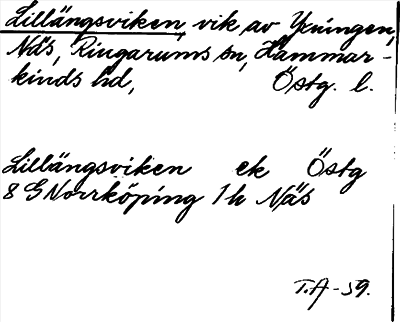 Lillängsviken, vik av Yxningen,
Näs, Ringarums sn, Hammar-
kinds hd, Östg. l.
Lillängsviken ek Östg
8 G Norrköping 1h Näs
T.A-59.